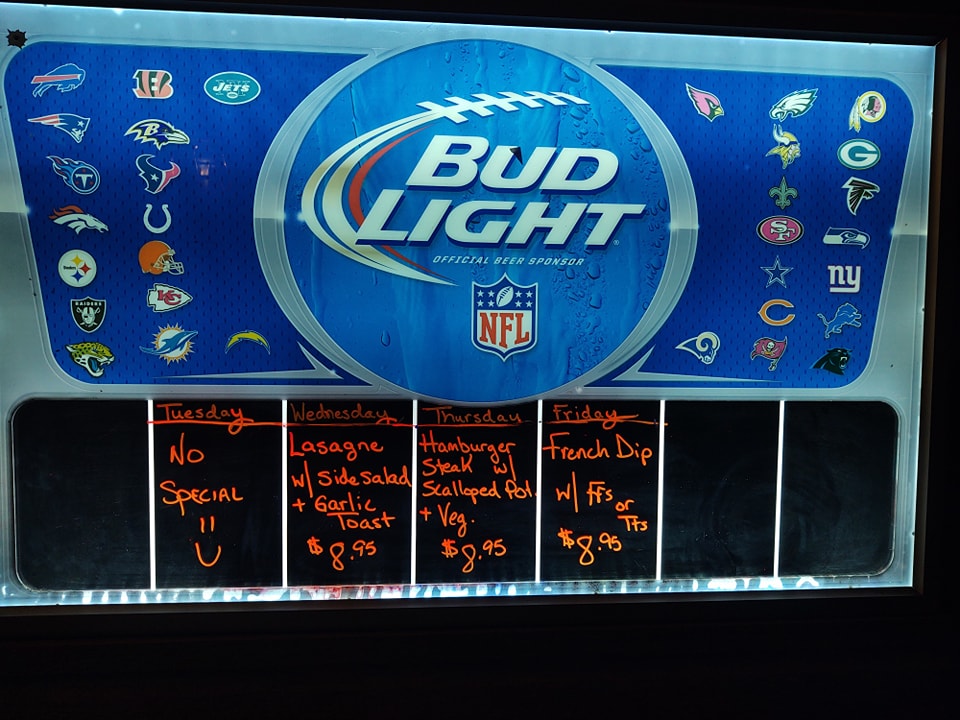 JETS
BUD
LIGHT
OFFICIAL BEER SPONSOR
NFL
Steelers
RAIDERS
G
SF
ny
Tuesday
No
Special
Wednesday
Lasagne
w/ Side Salad
+ Garlic
Toast
$8.95
Thursday
Hamburger
Steak w/
Scalloped Pot.
+ Veg.
$8.95
Friday
French Dip
w/ FFs
or
TTs
$8.95